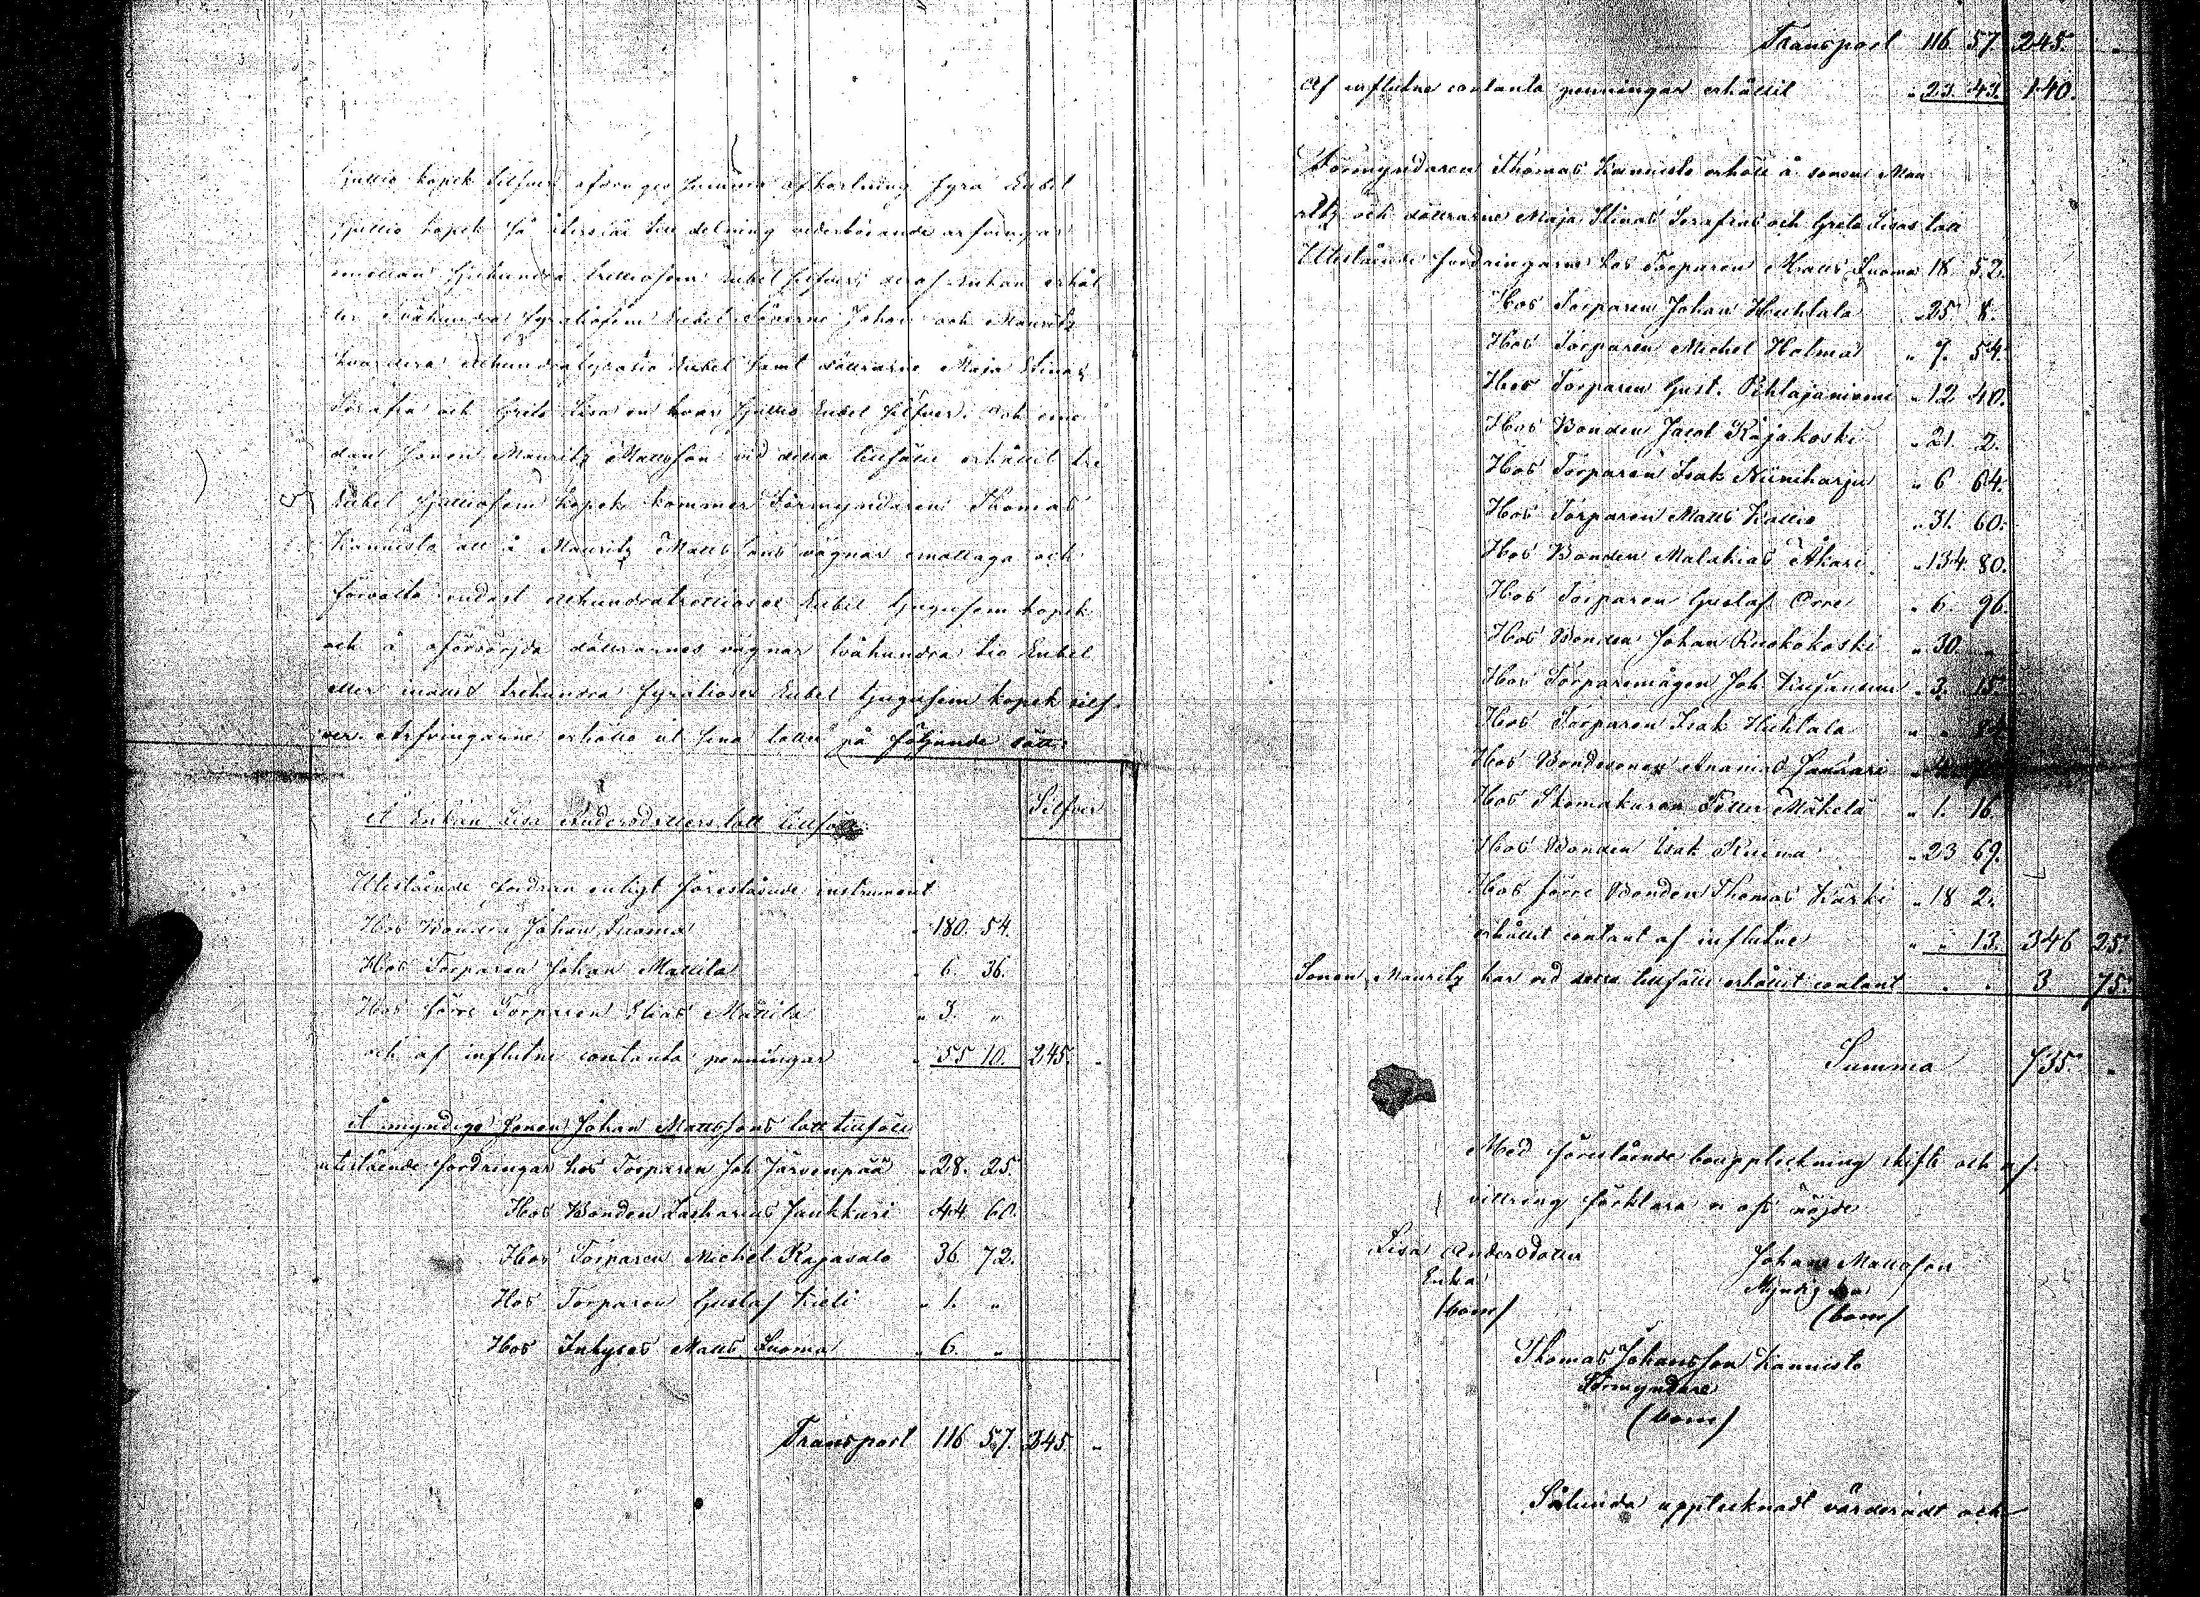 sjuttio kopek silfver afdragen summa afkortning fyra Rubel
sjuttio kopek så återstår till delning vederbörande arfvingar
emellan sjuhundra trettiofem Rubel silfver; deraf Enkan erhål
ler Tvåhundra fyratiofem Rubel Sönerne Johan och Mauritz
hvardera etthundrafyratio Rubel samt döttrarne Maja Stina,
Serafia och Greta Lisa en hvar sjuttio Rubel silfver. och eme
dan sonen Mauritz Mattsson vid detta tillfälle erhållit tre
Rubel sjuttiofem kopek kommer Förmyndaren Thomas
Kannisto att å Mauritz Mattssons vägnar emottaga och
förvalta endast etthundratrettiosex Rubel tjugufem kopek
och å oförsörjda döttrarnes vägnar tvåhundra tio Rubel
eller inalles trehundra fyratiosex Rubel tjugufem kopek silf
ver. Arfvingarne erhöllo ut sina lotter på följande sätt:
Silfver
Å Enkan Lisa Andersdotters lott tillföll
Utestående fordran enligt förestående instrument
Hos Bonden Johan Luoma " 180. 54.
Hos Torparen Johan Mattila " 6. 36.
Hos förre Torparen Elias Mattila " 3. "
och af influtne contanta penningar " 55 10. 245. "
Å myndige sonen Johan Mattssons lott tillföll
utestående fordringar hos Torparen Joh Järvenpää " 28. 25.
Hos Bonden Zacharias Jaukkuri 44. 60.
Hos Torparen Michel Rajasalo 36. 72.
Hos Torparen Gustaf Kieli " 1. "
Hos Inhyses Matts Luoma " 6. "
Transport 116 57. 245. "
Transport 116 57. 245. "
Af influtne contanta penningar erhållit " 23. 43. 140.
Förmyndaren Thomas Kannisto erhöll å sonen Mau
ritz och döttrarne Maja Stinas Serafias och Greta Lisas lott
Utestående fordringarne hos Torparen Matts Luoma 18 52.
Hos Torparen Johan Huhtala " 25 8.
Hos Torparen Michel Holma " 7. 54.
Hos Torparen Gust. Pihlajaniemi " 12 40.
Hos Bonden Jacob Rajakoski " 21. 2.
Hos Torparen Isak Niiniharju " 6 64.
Hos Torparen Matts Kallio " 31. 60.
Hos Bonden Malakias Åkari " 134. 80.
Hos Torparen Gustaf Orre " 6. 96.
Hos Bonden Johan Ruokokoski " 30. "
Hos Torparemågen Joh " 3. 15.
Hos Torparen Isak Huhtala " "
Hos Bondesonen Ananias
Hos Skomakaren Petter Mäkelä " 1. 16.
Hos Bonden Isak Ruona " 23 69.
Hos förre Bonden Thomas Kärki " 18 2.
erhållit contant af influtne " " 13. 346 25.
Sonen Mauritz har vid detta tillfälle erhållit contant " " 3 75.
Summa 735. "
Med förestående bouppteckning skifte och af
vittring förklara vi oss nöjde
Lisa Andersdotter
Enka
(bom)
Johan Mattsson
Myndig son
(bom)
Thomas Johansson Kannisto
Förmyndare
(bom)
Sålunda upptecknadt värderadt och